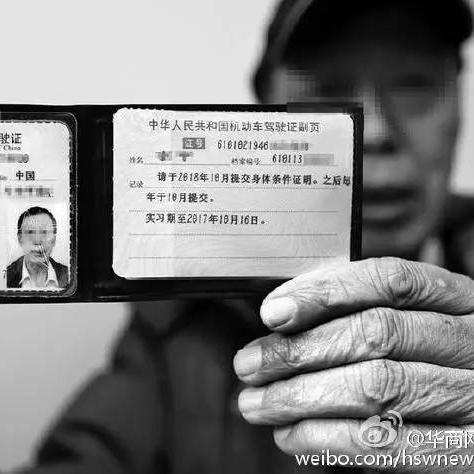 驶证
China
中国
中华人民共和国机动车驾驶证副页
证号 6101021946
姓名 档案编号 610113
记录 请于2018年10月提交身体条件证明。之后每
年于10月提交。
实习期至2017年10月16日。
@华商网
weibo.com/hswnew